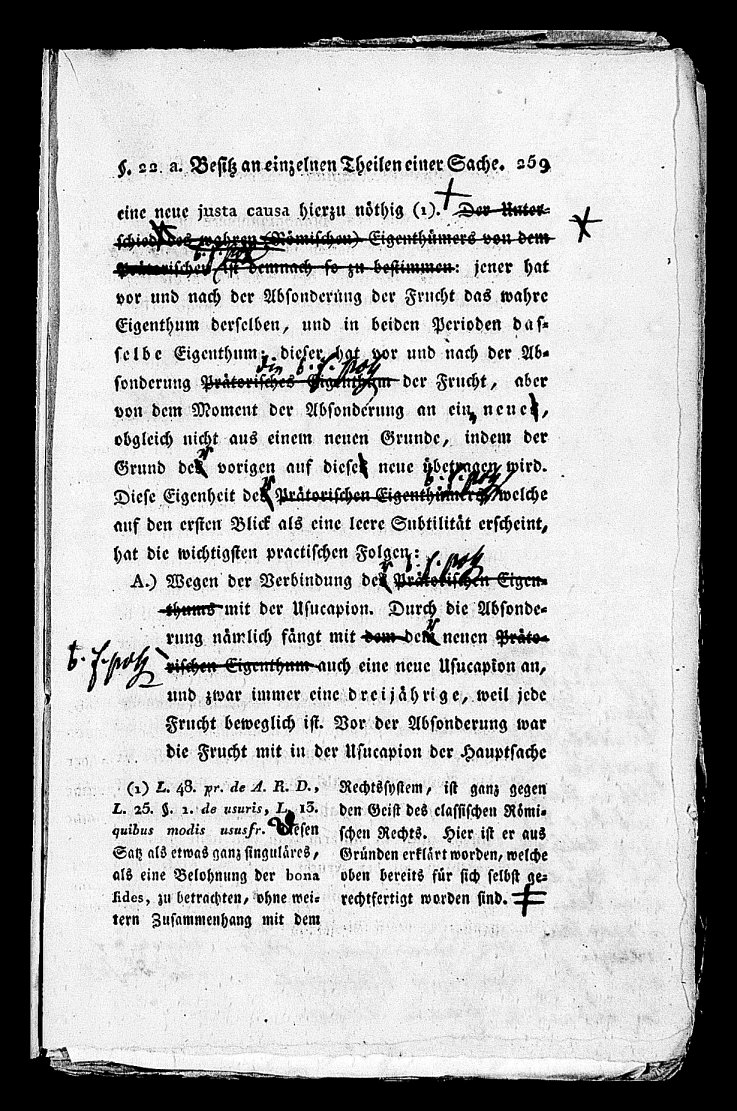 §. 22. a. Besitz an einzelnen Theilen einer Sache. 259
eine neue justa causa hierzu nöthig (1). Der Unter-
schied des wahren (Römischen) Eigenthümers von dem
b. f. poss
Prätorischen ist demnach so zu bestimmen: jener hat
vor und nach der Absonderung der Frucht das wahre
Eigenthum derselben, und in beiden Perioden das-
selbe Eigenthum; dieser hat vor und nach der Ab-
die b. f. poss
sonderung Prätorisches Eigenthum der Frucht, aber
von dem Moment der Absonderung an ein neues,
obgleich nicht aus einem neuen Grunde, indem der
Grund des vorigen auf dieses neue übetragen wird.
b. f. poss
Diese Eigenheit des Prätorischen Eigenthümers, welche
auf den ersten Blick als eine leere Subtilität erscheint,
hat die wichtigsten practischen Folgen:
b. f. poss
A.) Wegen der Verbindung des Prätorischen Eigen-
thums mit der Usucapion. Durch die Absonde-
rung nämlich fängt mit dem dem neuen Präto-
b. f. poss
rischen Eigenthum auch eine neue Usucapion an,
und zwar immer eine dreijährige, weil jede
Frucht beweglich ist. Vor der Absonderung war
die Frucht mit in der Usucapion der Hauptsache
(1) L. 48. pr. de A. R. D.,
L. 25. §. 1. de usuris, L. 13.
quibus modis ususfr. Diesen
Satz als etwas ganz singuläres,
als eine Belohnung der bona
fides, zu betrachten, ohne wei-
tern Zusammenhang mit dem
Rechtssystem, ist ganz gegen
den Geist des classischen Römi-
schen Rechts. Hier ist er aus
Gründen erklärt worden, welche
oben bereits für sich selbst ge-
rechtfertigt worden sind.